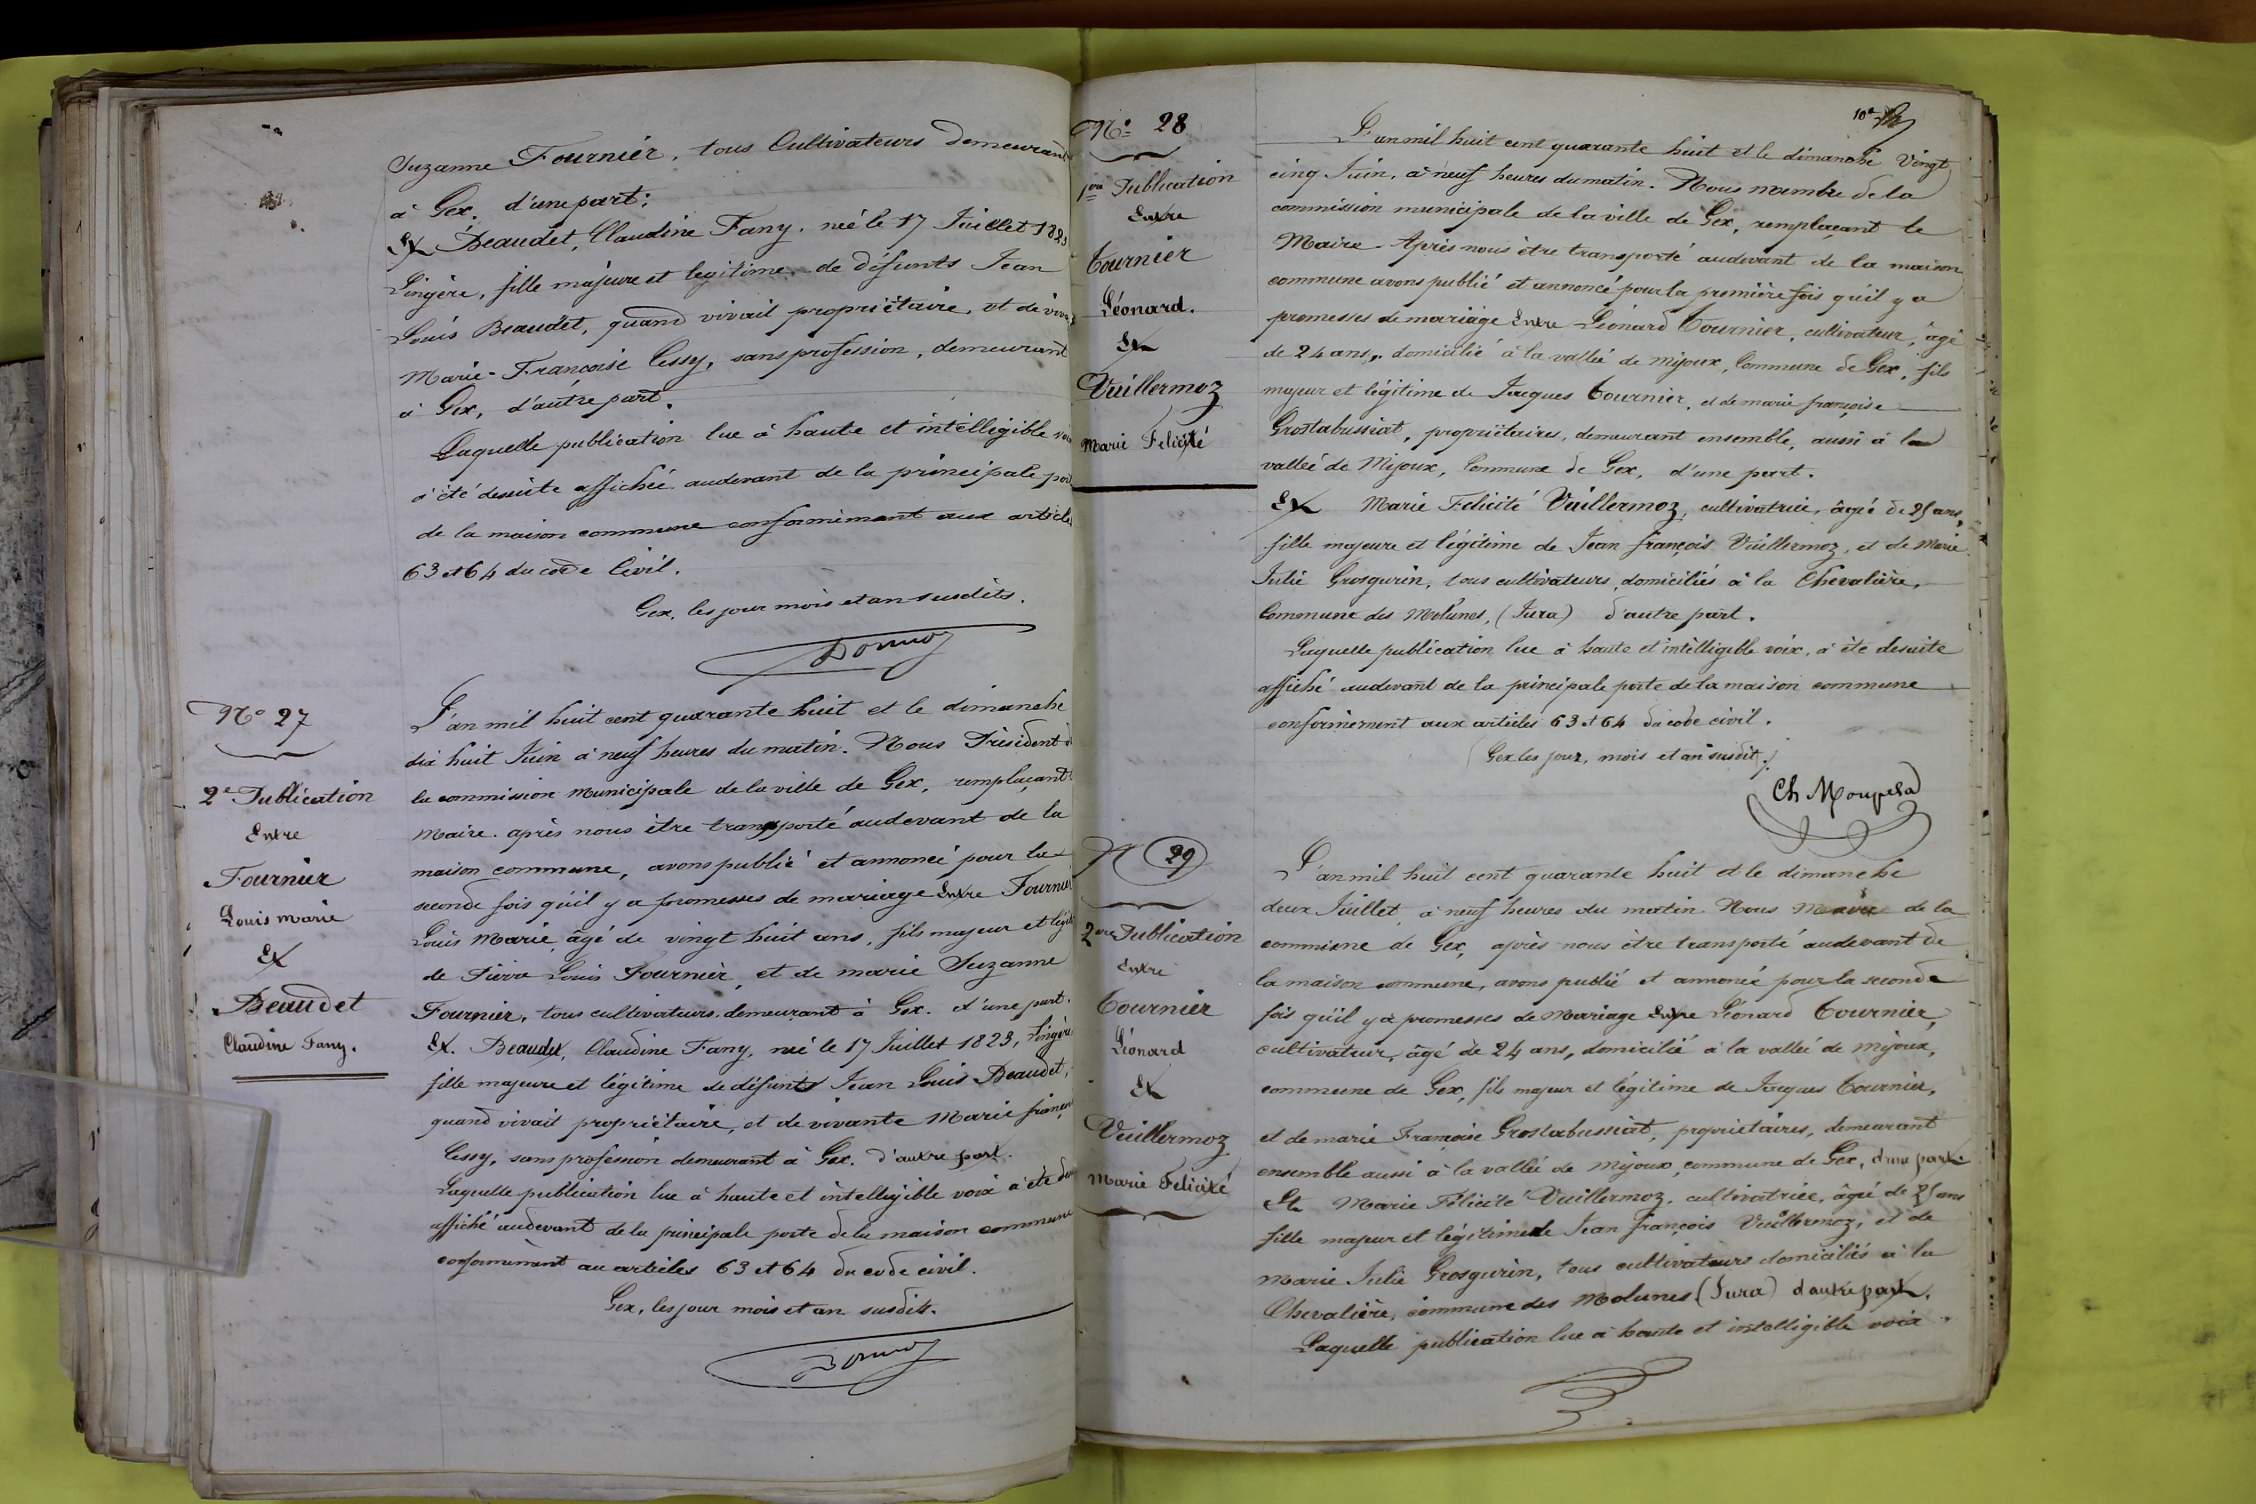 Suzanne Fournier, tous Cultivateurs demeurant
à Gex. d'une part;
Et Beaudet, Claudine Fany. née le 17 Juillet 1823
Lingère, fille majeure et legitime de défunts Jean
Louis Beaudet, quand vivait propriétaire, et de viva
Marie-Françoise Cessy, sans profession, demeurant
à Gex, d'autre part.
Laquelle publication lue à haute et intelligible voix
a été desuite affichée audevant de la principale por
de la maison commune conformément aux article
63 et 64 du code Civil.
Gex, les jour mois et an susdits.
N° 27
2e Publication
Entre
Fournier
Louis marie
Et
Beaudet
Claudine Fany.
L'an mil huit cent quarante huit et le dimanche
dix huit Juin à neuf heures du matin. Nous Président d
la commission municipale de la ville de Gex, remplaçant
Maire. après nous être transporté audevant de la
maison commune, avons publié et annoncé pour la
seconde fois qu'il y a promesses de mariage Entre Fournier
Louis Marie, âgé de vingt huit ans, fils majeur et légit
de Pierre Louis Fournier, et de marie Suzanne
Fournier, tous cultivateurs, demeurant à Gex. d'une part.
Et. Beaudet, Claudine Fany, née le 17 Juillet 1823, Lingère
fille majeure et légitime de défunts Jean Louis Beaudet,
quand vivait propriétaire, et de vivante Marie françoi
Cessy, sans profession demeurant à Gex. d'autre part.
Laquelle publication lue à haute et intelligible voix a été des
affiché audevant de la principale porte de la maison commune
conformément au articles 63 et 64 du code civil.
Gex, les jour mois et an susdits.
10e
N° 28
1ere Publication
Entre
Tournier
Léonard.
Et
Vuillermoz
Marie Felicité
L'an mil huit cent quarante huit et le dimanche Vingt
cinq Juin, à neuf heures du matin. Nous membre de la
commission municipale de la ville de Gex, remplaçant le
Maire. Après nous être transporté audevant de la maison
commune avons publié et annoncé pour la première fois qu'il y a
promesses de mariage Entre Léonard Tournier, cultivateur, âgé
de 24 ans, domicilié à la vallée de mijoux, Commune de Gex, fils
majeur et légitime de Jacques Tournier, et de marie françoise
Groslabussiat, propriétaires, demeurant ensemble, aussi à la
vallée de Mijoux, Commune de Gex, d'une part.
Et Marie Felicité Vuillermoz, cultivatrice, âgée de 25 ans,
fille majeure et légitime de Jean françois Vuillermoz, et de Marie
Julie Grosgurin, tous cultivateurs, domiciliés à la Chevalière,
Commune des Molunes, (Jura) d'autre part.
Laquelle publication lue à haute et intelligible voix, a été desuite
affiché audevant de la principale porte de la maison commune
conformément aux articles 63 et 64 du code civil.
Gex les jour, mois et an susdit.
N° 29
2ere Publication
Entre
Tournier
Léonard
Et
Vuillermoz
Marie Felicité
L'an mil huit cent quarante huit et le dimanche
deux Juillet à neuf heures du matin. Nous Maire de la
commune de Gex, après nous être transporté audevant de
la maison commune, avons publié et annoncé pour la seconde
fois qu'il y a promesses de Mariage Entre Léonard Tournier,
cultivateur, âgé de 24 ans, domicilié à la vallée de mijoux,
commune de Gex, fils majeur et légitime de Jacques Tournier,
et de marie Françoise Groslabussiat, propriétaires, demeurant
ensemble aussi à la vallée de Mijoux, commune de Gex, d'une part.
Et Marie Félicité Vuillermoz, cultivatrice, âgée de 25 ans
fille majeur et légitime de Jean françois Vuillermoz, et de
Marie Julie Grosgurin, tous cultivateurs domiciliés à la
Chevalière, commune des Molunes (Jura) d'autre part.
Laquelle publication lue à haute et intelligible voix